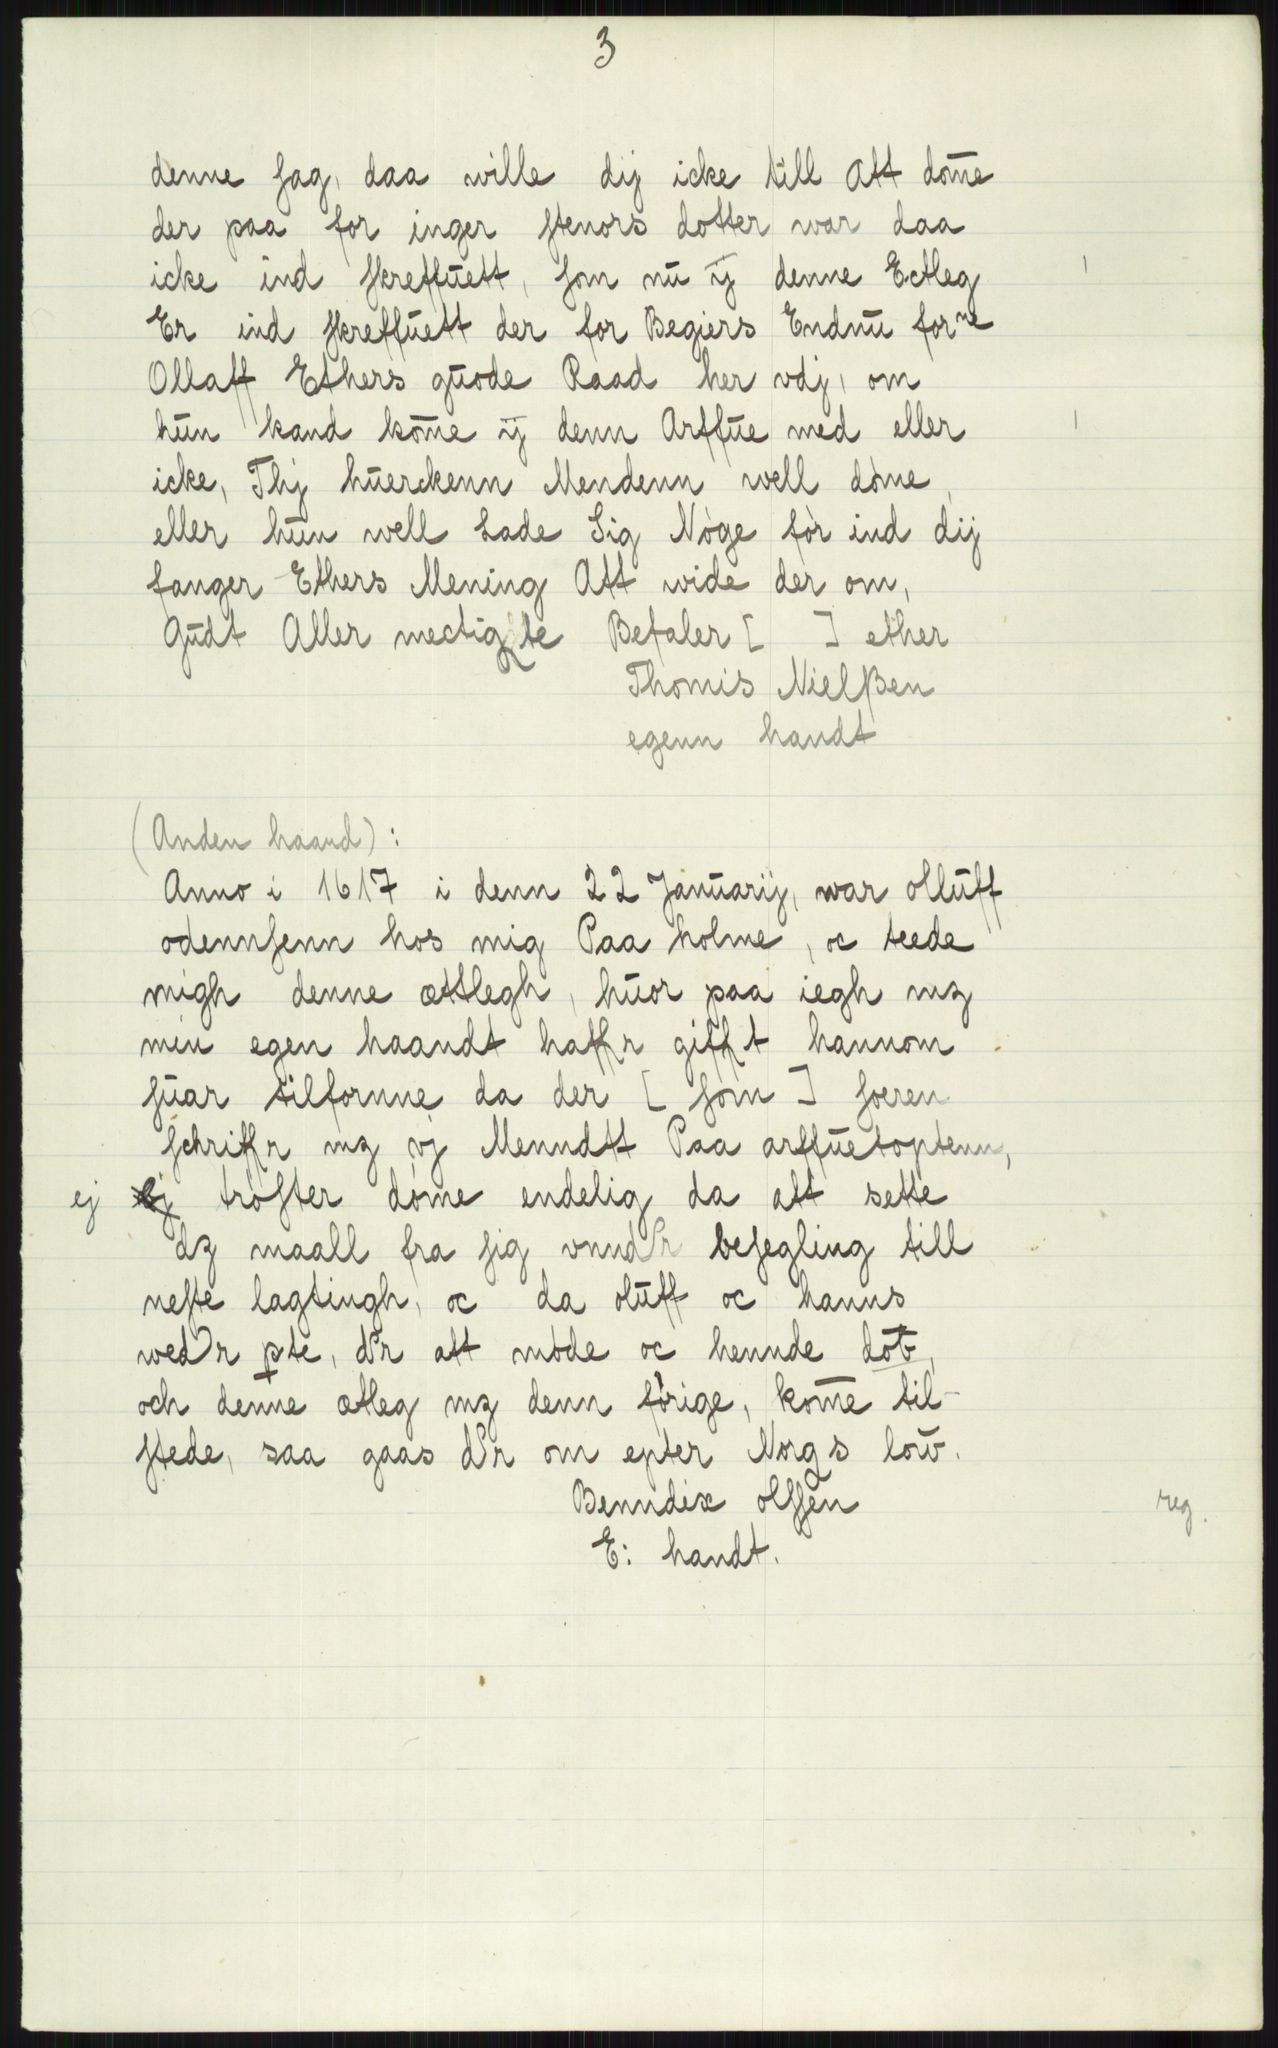 3
denne sag, daa wille dij icke till Att dom̄e
der paa for inger stenors dotter war daa
icke ind skreffuett, som nu ij denne Ectleg
Er ind skreffuett der for Begiers Endnu forⁿᵉ
Ollaff Ethers guode Raad her vdj, om
hun kand kom̄e ij denn Arffue med eller
icke, Thj huerckenn Mendenn well dòme,
eller hun well Lade Sig Nòge fòr ind dij
fanger Ethers Mening Att wide der om,
Gudt Aller mectigste Befaler [ ] ether
Thomis Nielßen
egenn handt
(Anden haand):
Anno i 1617 i denn 22 Januarij, war olluff
odennsenn hos mig Paa holme, oc teede
migh denne ættlegh, huor paa iegh mz
min egen haandt haffr gifft hannom
suar tilfornne da der [ som ] soeren
schriffr mz vj Menndtt Paa arffuetoptenn,
ej ej tròster dòme endelig da att sette
dz maall fra sig vnndr besegling till
neste lagtingh, oc da oluff oc hanns
wedr pte, dr att mòde oc hennde dòv,
och denne ætleg mz denn fòrige, kom̄e til-
stede, saa gaas dr om epter Norgs low.
Benndix olssen
E: handt.
reg.